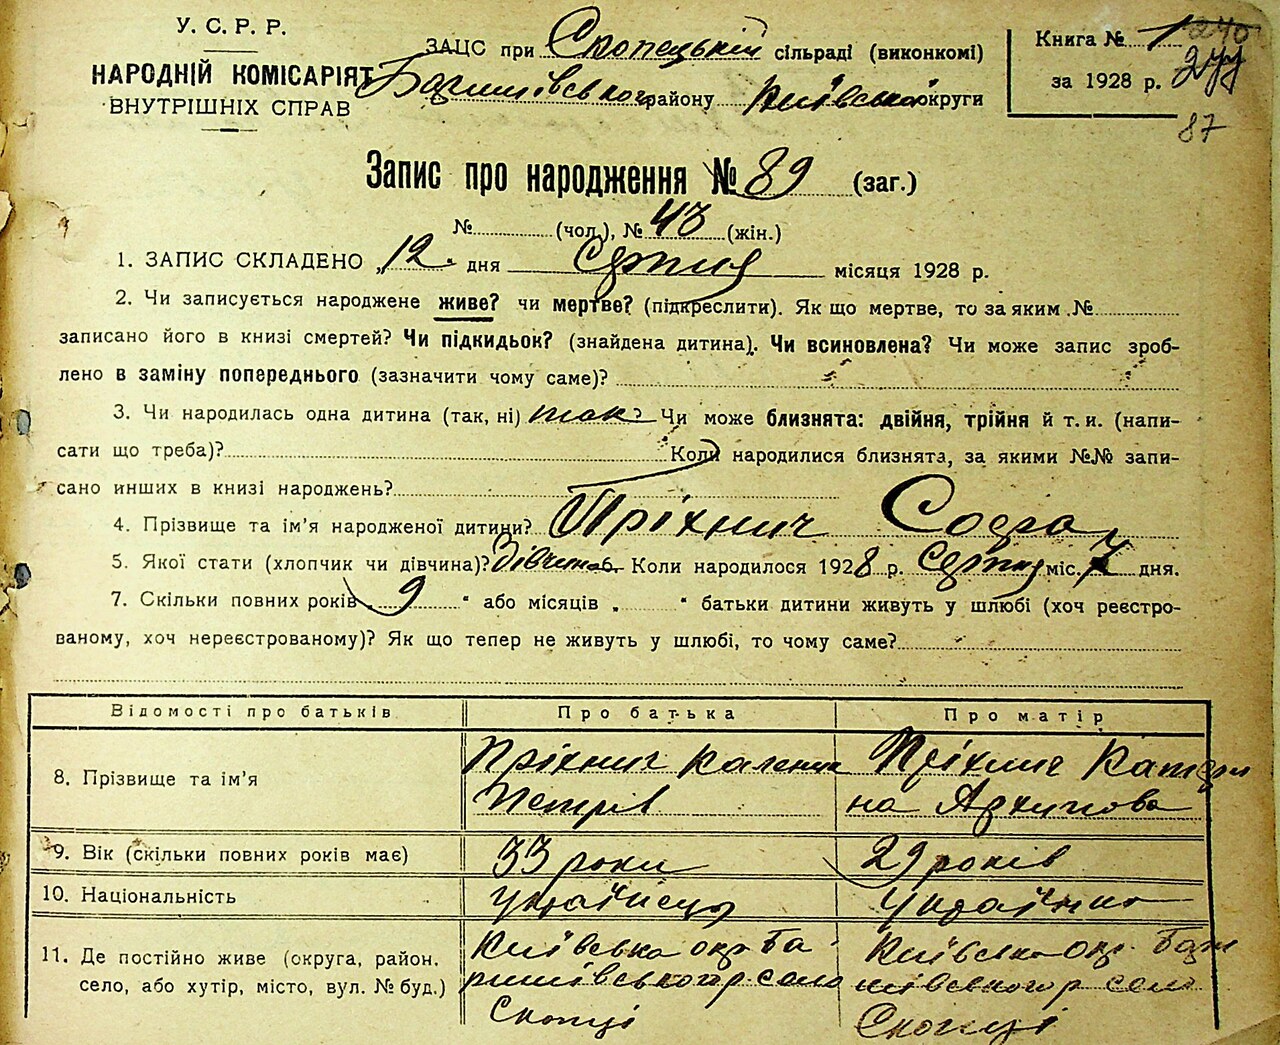 У. С. Р. Р.
НАРОДНІЙ КОМІСАРІЯТ
ВНУТРІШНІХ СПРАВ
ЗАЦС при Скопецькій сільраді (виконкомі)
Баришівського району Київської округи
Книга № 1
за 1928 р.
240
277
87
Запис про народження № 89 (заг.)
№ (чол.), № 43 (жін.)
1. ЗАПИС СКЛАДЕНО „12 дня Серпня місяця 1928 р.
2. Чи записується народжене живе? чи мертве? (підкреслити). Як що мертве, то за яким №
записано його в книзі смертей? Чи підкидьок? (знайдена дитина). Чи всиновлена? Чи може запис зроб-
лено в заміну попереднього (зазначити чому саме)?
3. Чи народилась одна дитина (так, ні) так? Чи може близнята: двійня, трійня й т. и. (напи-
сати що треба)? Коли народилися близнята, за якими №№ запи-
сано инших в книзі народжень?
4. Прізвище та ім’я народженої дитини? Пріхнич Софа
5. Якої стати (хлопчик чи дівчина)? Дівчина Коли народилося 1928 р. Серпня міс. 7 дня.
7. Скільки повних років „ 9 “ або місяців „ “ батьки дитини живуть у шлюбі (хоч реєстро-
ваному, хоч нереєстрованому)? Як що тепер не живуть у шлюбі, то чому саме?
Відомості про батьків Про батька Про матір
8. Прізвище та ім’я Пріхнич Каленик Пріхнич Катери
Петрів на Архипова
9. Вік (скільки повних років має) 33 роки 29 років
10. Національність Українець Українка
11. Де постійно живе (округа, район, Київська окр Ба Київська окр. Бари
село, або хутір, місто, вул. № буд.) ришівського р село шівського р село
Скопці Скопці